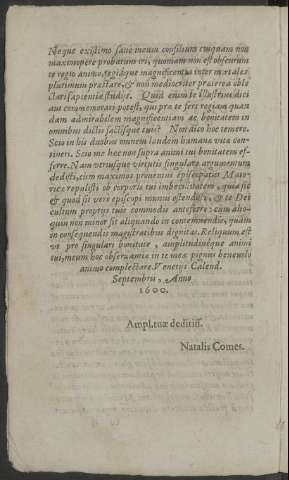 Neque existimo sanè meum consilium cuiquam non
maxcimpere probatum iri, quoniam non est obscurum
te regio animo, regiáque magnificentia inter mortales
plurimum præstare, & non mediocriter præterea oble
ctari sapientiæ studijs. Quid enim te Illustrius dici
aut commemorari potest, qui præ te fers regiam quan
dam admirabilem magnificentiam ac bonitatem in
omnibus dictis factisque tuis? Non dico hoc temere.
Scio in his duobus omnem laudem humanæ vitæ con
tineri. Scio me hoc non supra animi tui bonitatem ef-
ferre. Nam vtriusque virtutis singulare argumentum
dedisti, cum maximos prouentus episcopatus
repulisti ob corporis tui imbecillitatem, quia sic
& quod sit veri episcopi munus ostendisti, & te Dei
cultum proprijs tuis commodis anteferre: cum alio-
quin non minor sit aliquando in contemnendis, quàm
in consequendis magistratibus dignitas. Reliquum est
vt pro singulari bonitate, amplitudineque animi
tui, meum hoc obseruantiæ in te meæ pignus beneuolo
animo complectare. Venetijs Calend.
Septembris, Anno
1600.
Ampl. tuæ deditiss.
Natalis Comes.